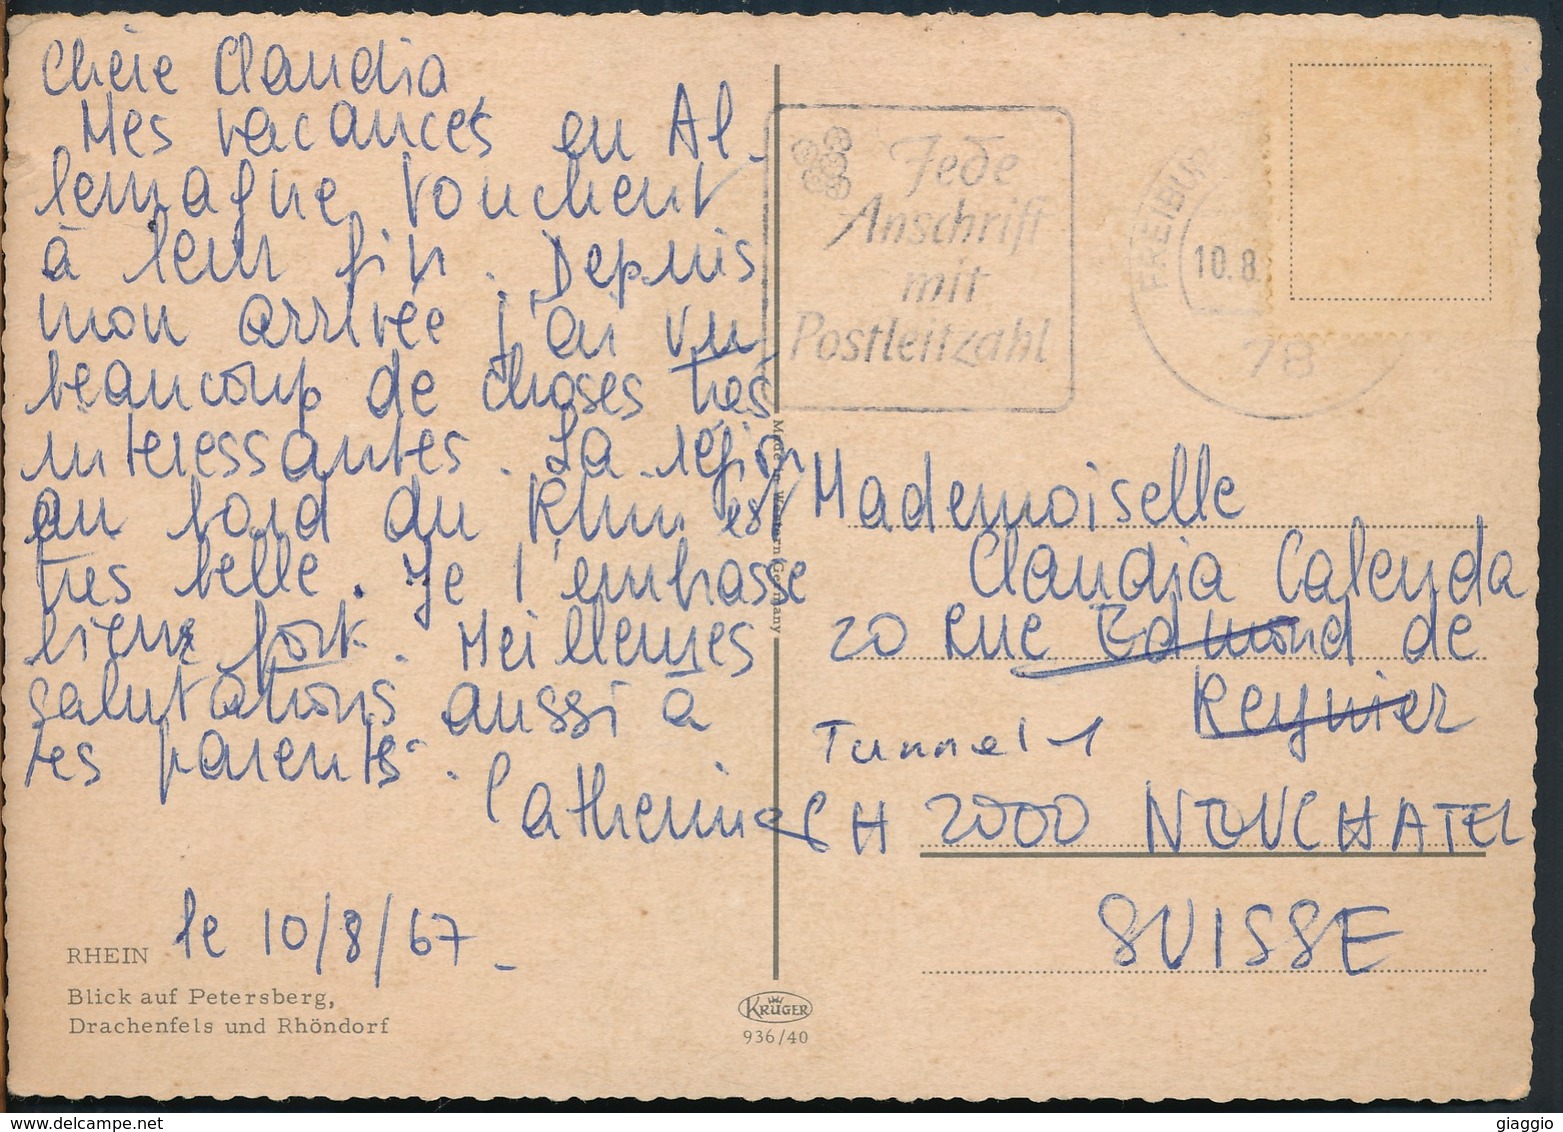 Chère Claudia
Mes vacances en Al-
lemagne touchent
à leur fin. Depuis
mon arrivée j'ai vu
beaucoup de choses très
interessantes. La région
au bord du Rhin est
très belle. Je t'embrasse
bien fort. Meilleures
salutations aussi à
tes parents.
Catherine
le 10/8/67
RHEIN
Blick auf Petersberg,
Drachenfels und Rhöndorf
KRÜGER
936/40
Made in Western Germany
Jede
Anschrift
mit
Postleitzahl
FREIBU
10.8.
78
Mademoiselle
Claudia Calenda
20 rue Edmond de
Reynier
Tunnel 1
CH 2000 NEUCHATEL
SUISSE
www.delcampe.net
giaggio